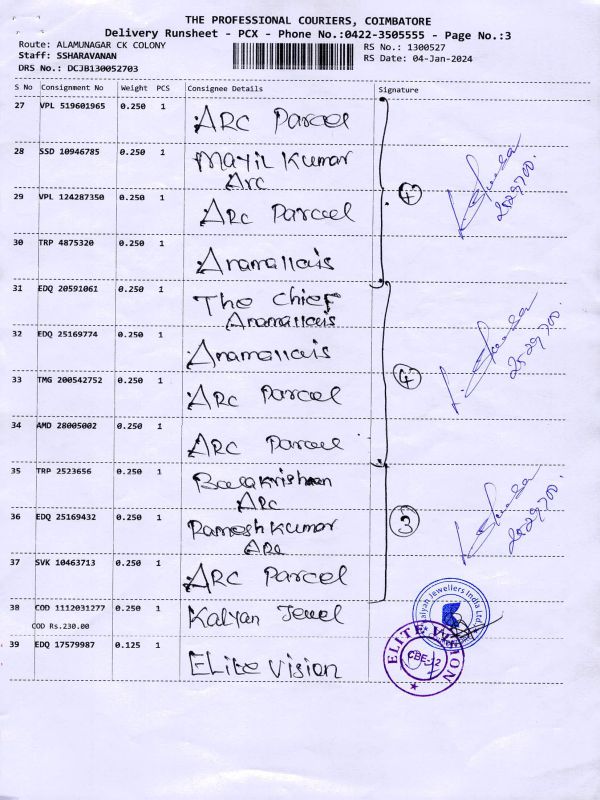 THE PROFESSIONAL COURIERS, COIMBATORE
Delivery Runsheet - PCX - Phone No.:0422-3505555 - Page No.:3
Route: ALAMUNAGAR CK COLONY
RS No.: 1300527
Staff: SSHARAVANAN
RS Date: 04-Jan-2024
DRS No.: DCJB130052703
S No Consignment No Weight PCS Consignee Details Signature
27 VPL 519601965 0.250 1 ARC Parcel
28 SSD 10946785 0.250 1 Mayil Kumar
Arc
29 VPL 124287350 0.250 1 ARC Parcel
4
30 TRP 4875320 0.250 1 Anamallais
31 EDQ 20591061 0.250 1 The Chief
Anamallais
32 EDQ 25169774 0.250 1 Anamallais
33 TMG 200542752 0.250 1 ARC Parcel
4
34 AMD 28005002 0.250 1 ARC Parcel
35 TRP 2523656 0.250 1 Balakrishnan
ARC
36 EDQ 25169432 0.250 1 Ramesh Kumar
ARC
3
37 SVK 10463713 0.250 1 ARC Parcel
38 COD 1112031277 0.250 1 Kalyan Jewel
COD Rs.230.00
Jewellers India Ltd
39 EDQ 17579987 0.125 1 ELite Vision
ELITE VISION
CBE-12